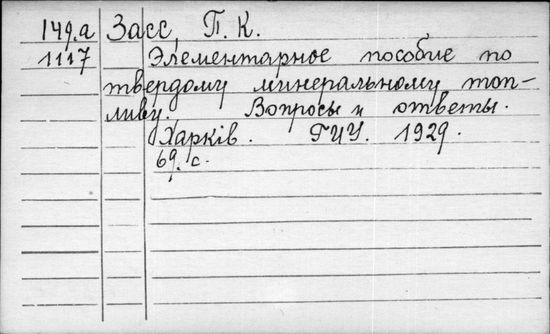 149.а Засс, П. К.
1117 Элементарное пособие по
твердому минеральному топ-
ливу. Вопросы и ответы.
Харкiв. ГИУ. 1929.
69. с.